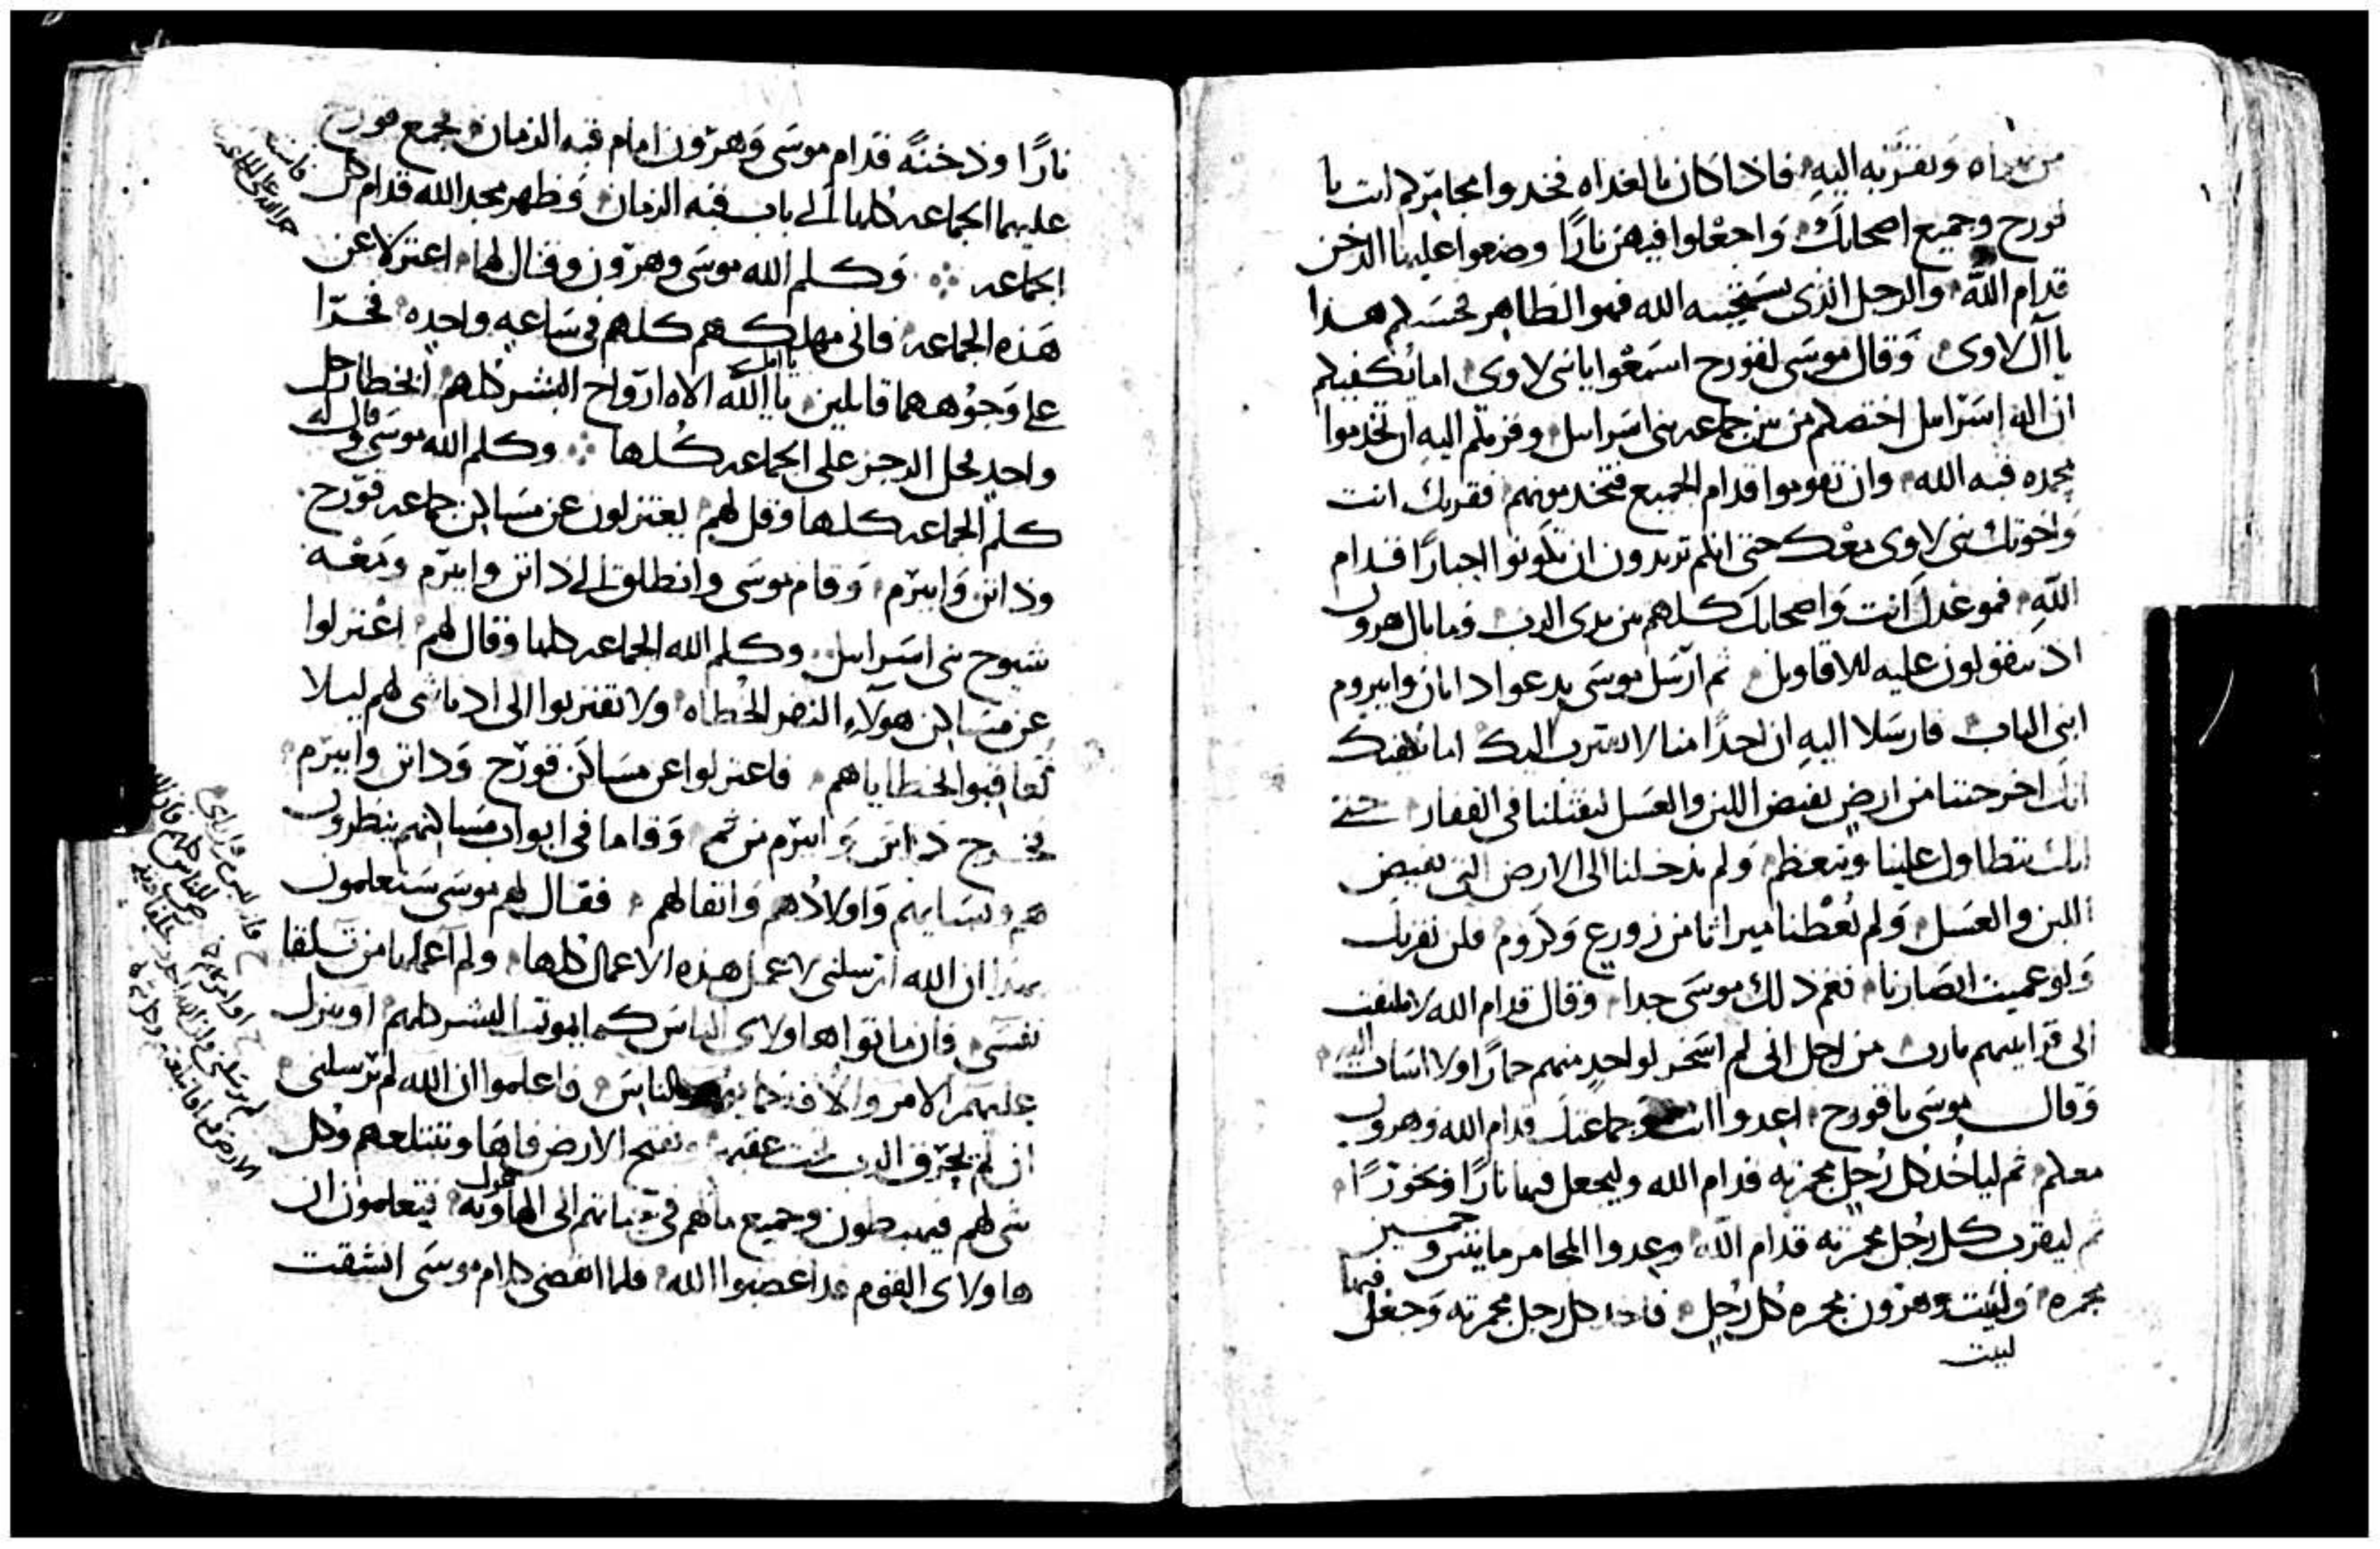 ويقربه اليه فاذا كان بالغداه فخدوا مجامركم انت يا
قورح وجميع اصحابك واجعلوا فيهن نارًا وضعوا عليها الدخن
قدام الله والرجل الذي ينتخبه الله فهو الطاهر فحسبكم هذا
يا آل لاوى وقال موسى لقورح اسمعوا يا بني لاوى اما يكفيكم
ان اله اسرايل اختصكم من بين جماعه بني اسرايل وقربكم اليه ان تخدموا
بخدمه قبه الله وان تقوموا قدام الجميع فتخدمونهم فقربك انت
واخوتك بني لاوى معك حتى انكم تريدون ان تكونوا احبارًا قدام
الله فموعدك انت واصحابك كلهم بين يدي الرب وما بال هرون
اذ تتقولون عليه الاقاويل ثم ارسل موسى يدعوا داثان وابيروم
ابنى الياب فارسلا اليه ان احدًا منا لا يقترب اليك اما يكفيك
انك اخرجتنا من ارض تفيض اللبن والعسل لتقتلنا في القفار حتى
انك تتطاول علينا وتتعظم ولم تدخلنا الى الارض التي تفيض
اللبن والعسل ولم تعطنا ميراثا من زورع وكروم فلن نقربك
ولو عميت ابصارنا فغم ذلك موسى جدا وقال قدام الله لا تلتفت
الى قرابينهم يا رب من اجل اني لم اسخر لواحد منهم حمارًا ولا اسات اليهم
وقال موسى يا قورح اعدوا انت وجماعتك قدام الله وهرون
معكم ثم لياخذ كل رجل مجمرته قدام الله وليجعل فيها نارًا وبخورًا
ثم ليقرب كل رجل مجمرته قدام الله وعدوا المجامر مايتين وخمسين
مجمره وليت وهرون مجمره كل رجل فاخذ كل رجل مجمرته وجعل فيها
ليت
نارًا ودخنةً قدام موسى وهرون امام قبه الزمان فجمع قورح
عليهما الجماعه كلها الى باب قبه الزمان وظهر مجد الله قدام كل
الجماعه وكلم الله موسى وهرون وقال لهما اعتزلا عن
هذه الجماعه فاني مهلكهم كلهم في ساعه واحده فخرّا
على وجوههما قايلين يا الله الاه ارواح البشر كلهم ان خطا رجل
واحد يحل الرجز على الجماعه كلها وكلم الله موسى وقال له
كلم الجماعه كلها وقل لهم يعتزلون عن مساكن جماعه قورح
وداثن وابيرم وقام موسى وانطلق الى داثن وابيرم ومعه
شيوخ بني اسرايل وكلم الله الجماعه كلها وقال لهم اعتزلوا
عن مساكن هولآء النفر الخطاه ولا تقتربوا الى ادنا شى لهم ليلا
تعاقبوا بخطاياهم فاعتزلوا عن مساكن قورح وداثن وابيرم
فخرج داثن وابيرم من ثم وقاما في ابواب مساكنهم ينظرون
هم ونسايهم واولادهم واثقالهم فقال لهم موسى ستعلمون
بهذا ان الله ارسلني لاعمل هذه الاعمال كلها ولم اعملها من تلقا
نفسي فان ماتوا هاولاى الناس كما يموت البشر كلهم او ينزل
عليهم الامر والآفه كما بالناس فاعلموا ان الله لم يرسلني
ان لم يخرق الرب تفتح الارض فاها وتبتلعهم وكل
شى لهم فيهبطون وجميع مالهم في حياتهم الى الهاويه فتعلمون ان
هاولاى القوم قد اغضبوا الله فلما انقضى كلام موسى انشقت